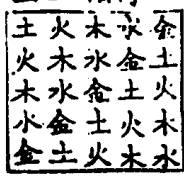 土火木水金
火木水金土
木水金土火
水金土火木
金土火木水